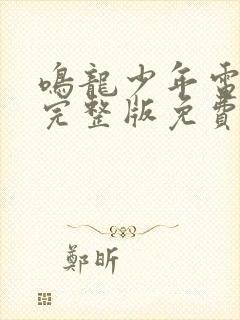 鳴龍少年電
完整版免費
鄭昕